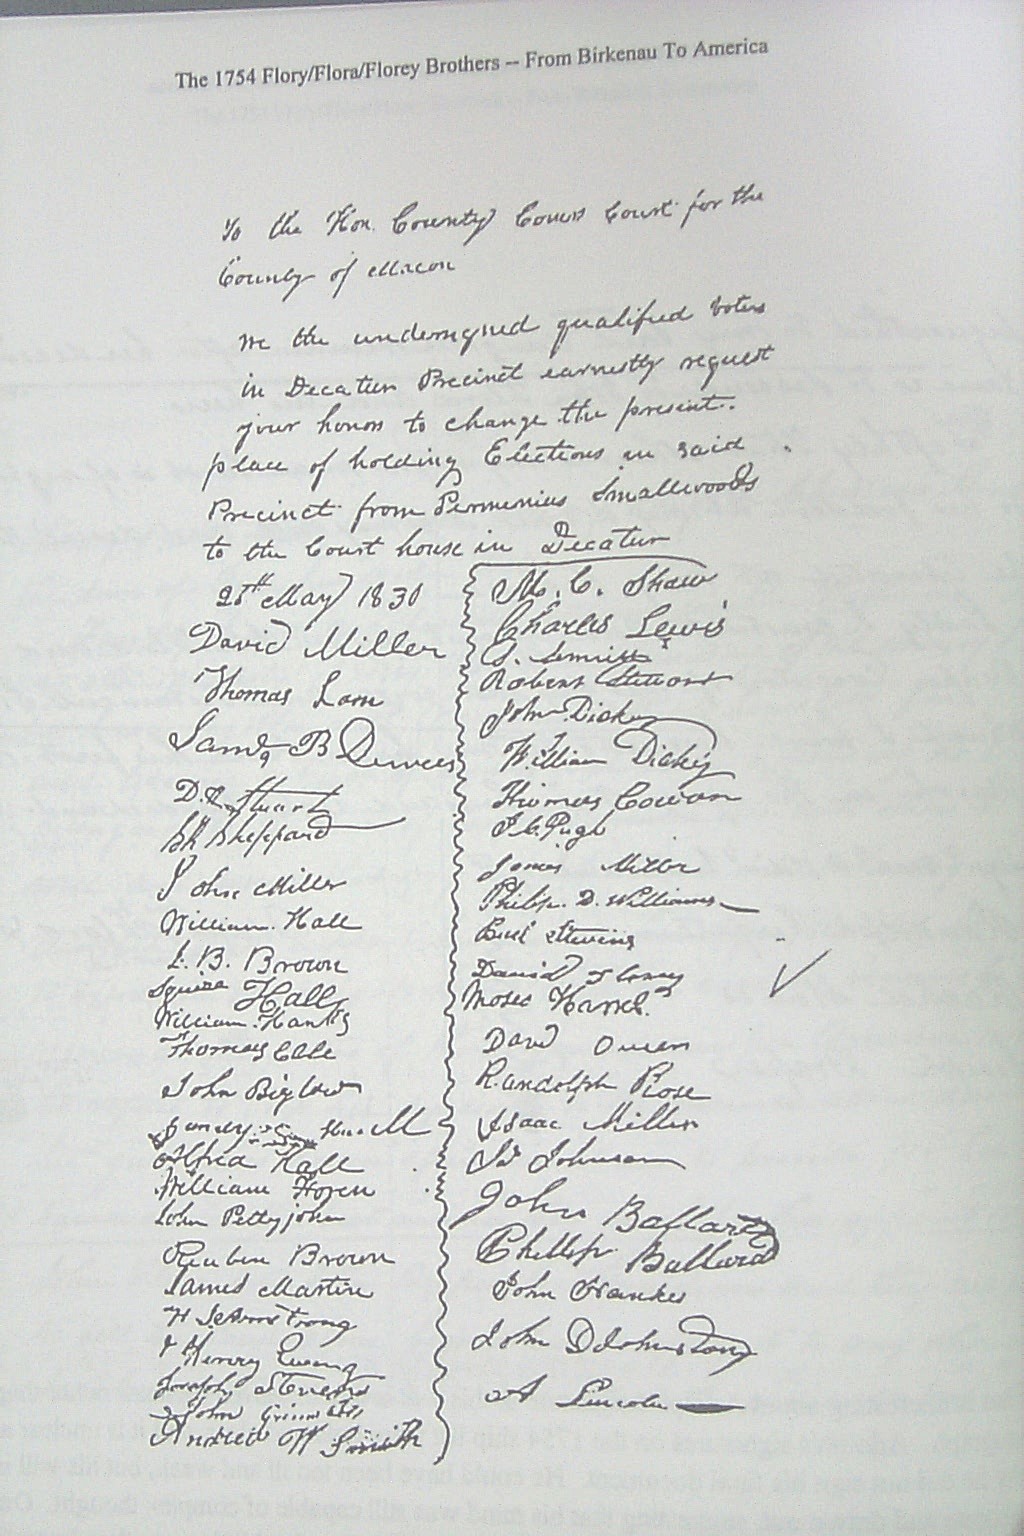 The 1754 Flory/Flora/Florey Brothers -- From Birkenau To America
To the Hon. County Coms Court for the
County of Macon
We the undersigned qualified voters
in Decatur Precinct earnestly request
your honors to change the present
place of holding Elections in said
Precinct from Permenius Smallwoods
to the Court house in Decatur
May 1830
David Miller
Thomas
B
D.
Sheppard
John Miller
William Hall
L. B. Brown
Squire Hall
William Hanks
Thomas Cole
John Biglow
Hall
William
John Pettyjohn
Reuben Brown
James Martin
Armstrong
Henry Ewing
Joseph Stevens
John
Andrew W Smith
M. C. Shaw
Charles Lewis
Robert
John Dickey
William Dickey
Thomas Cowan
Pugh
James Miller
Philip D. Williams
Stevins
David
Moses
David Owen
Randolph Rose
Isaac Miller
Johnson
John Ballard
Phillip Ballard
John Hanks
John D Johnston
A Lincoln